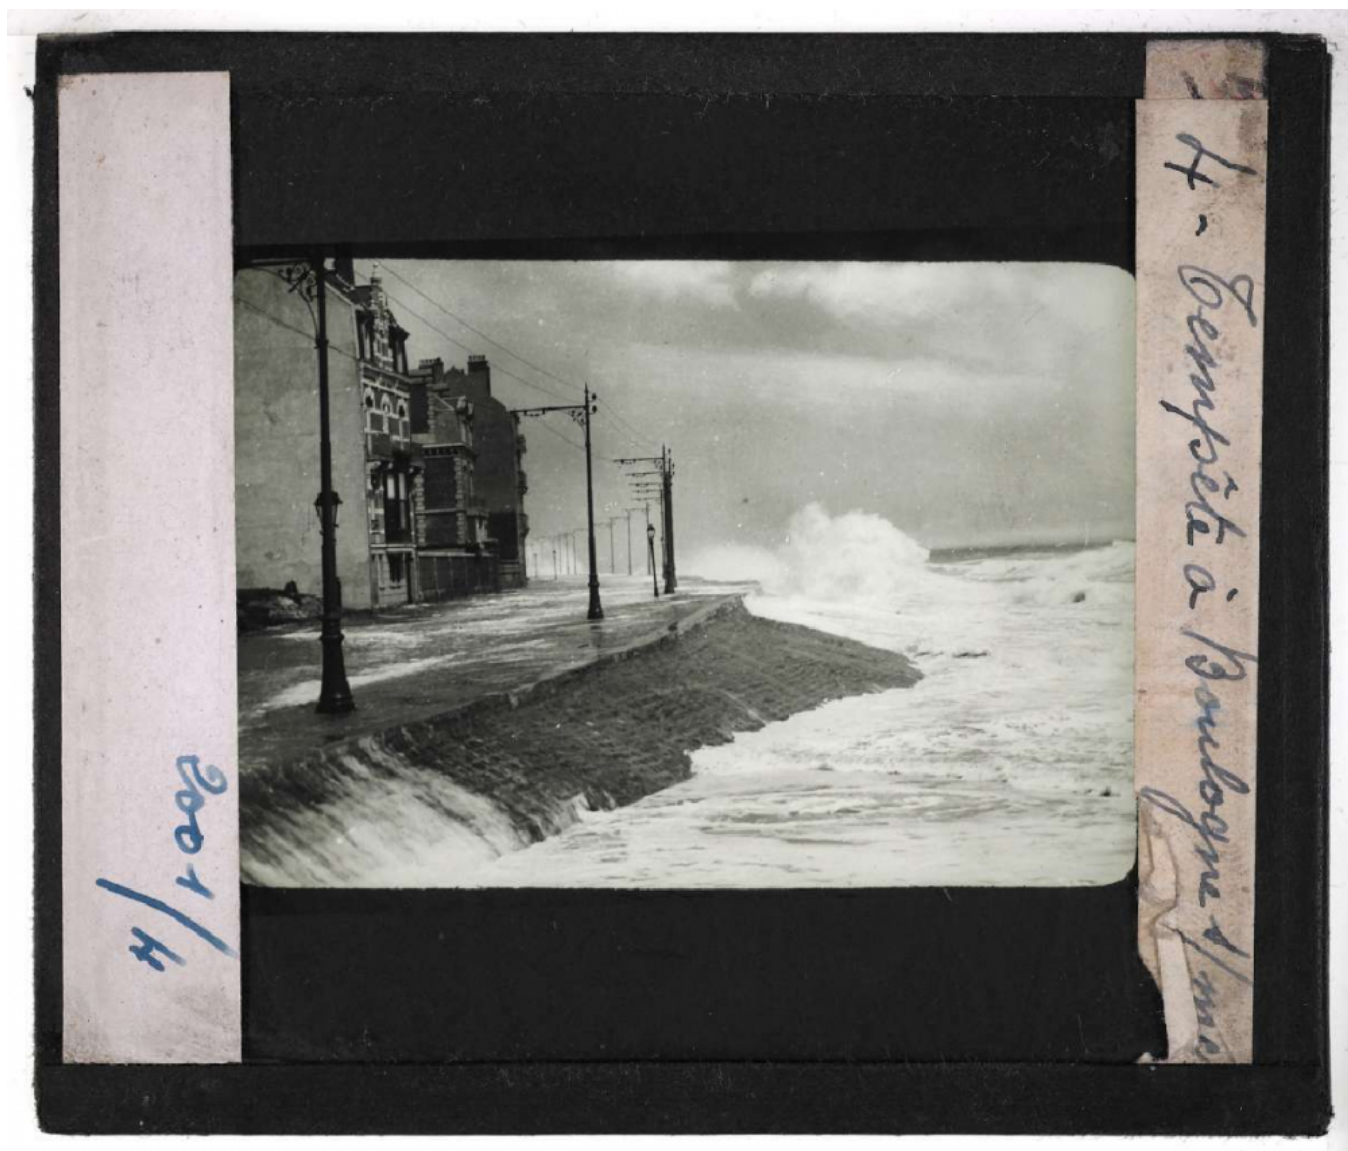 2001/4
4 - Tempête à Boulogne s/mer